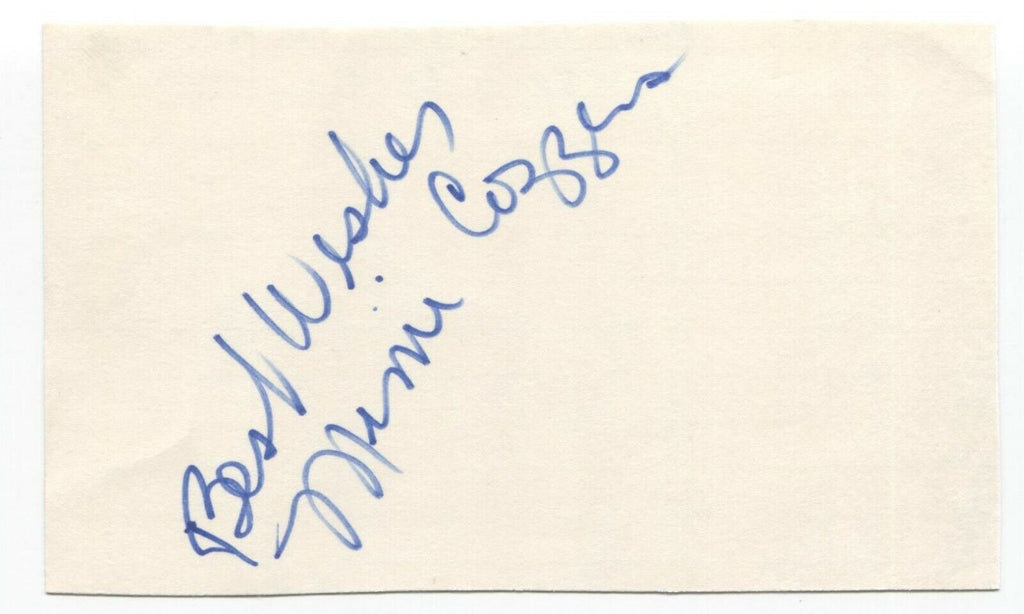 Best Wishes
Mimi Cozzens